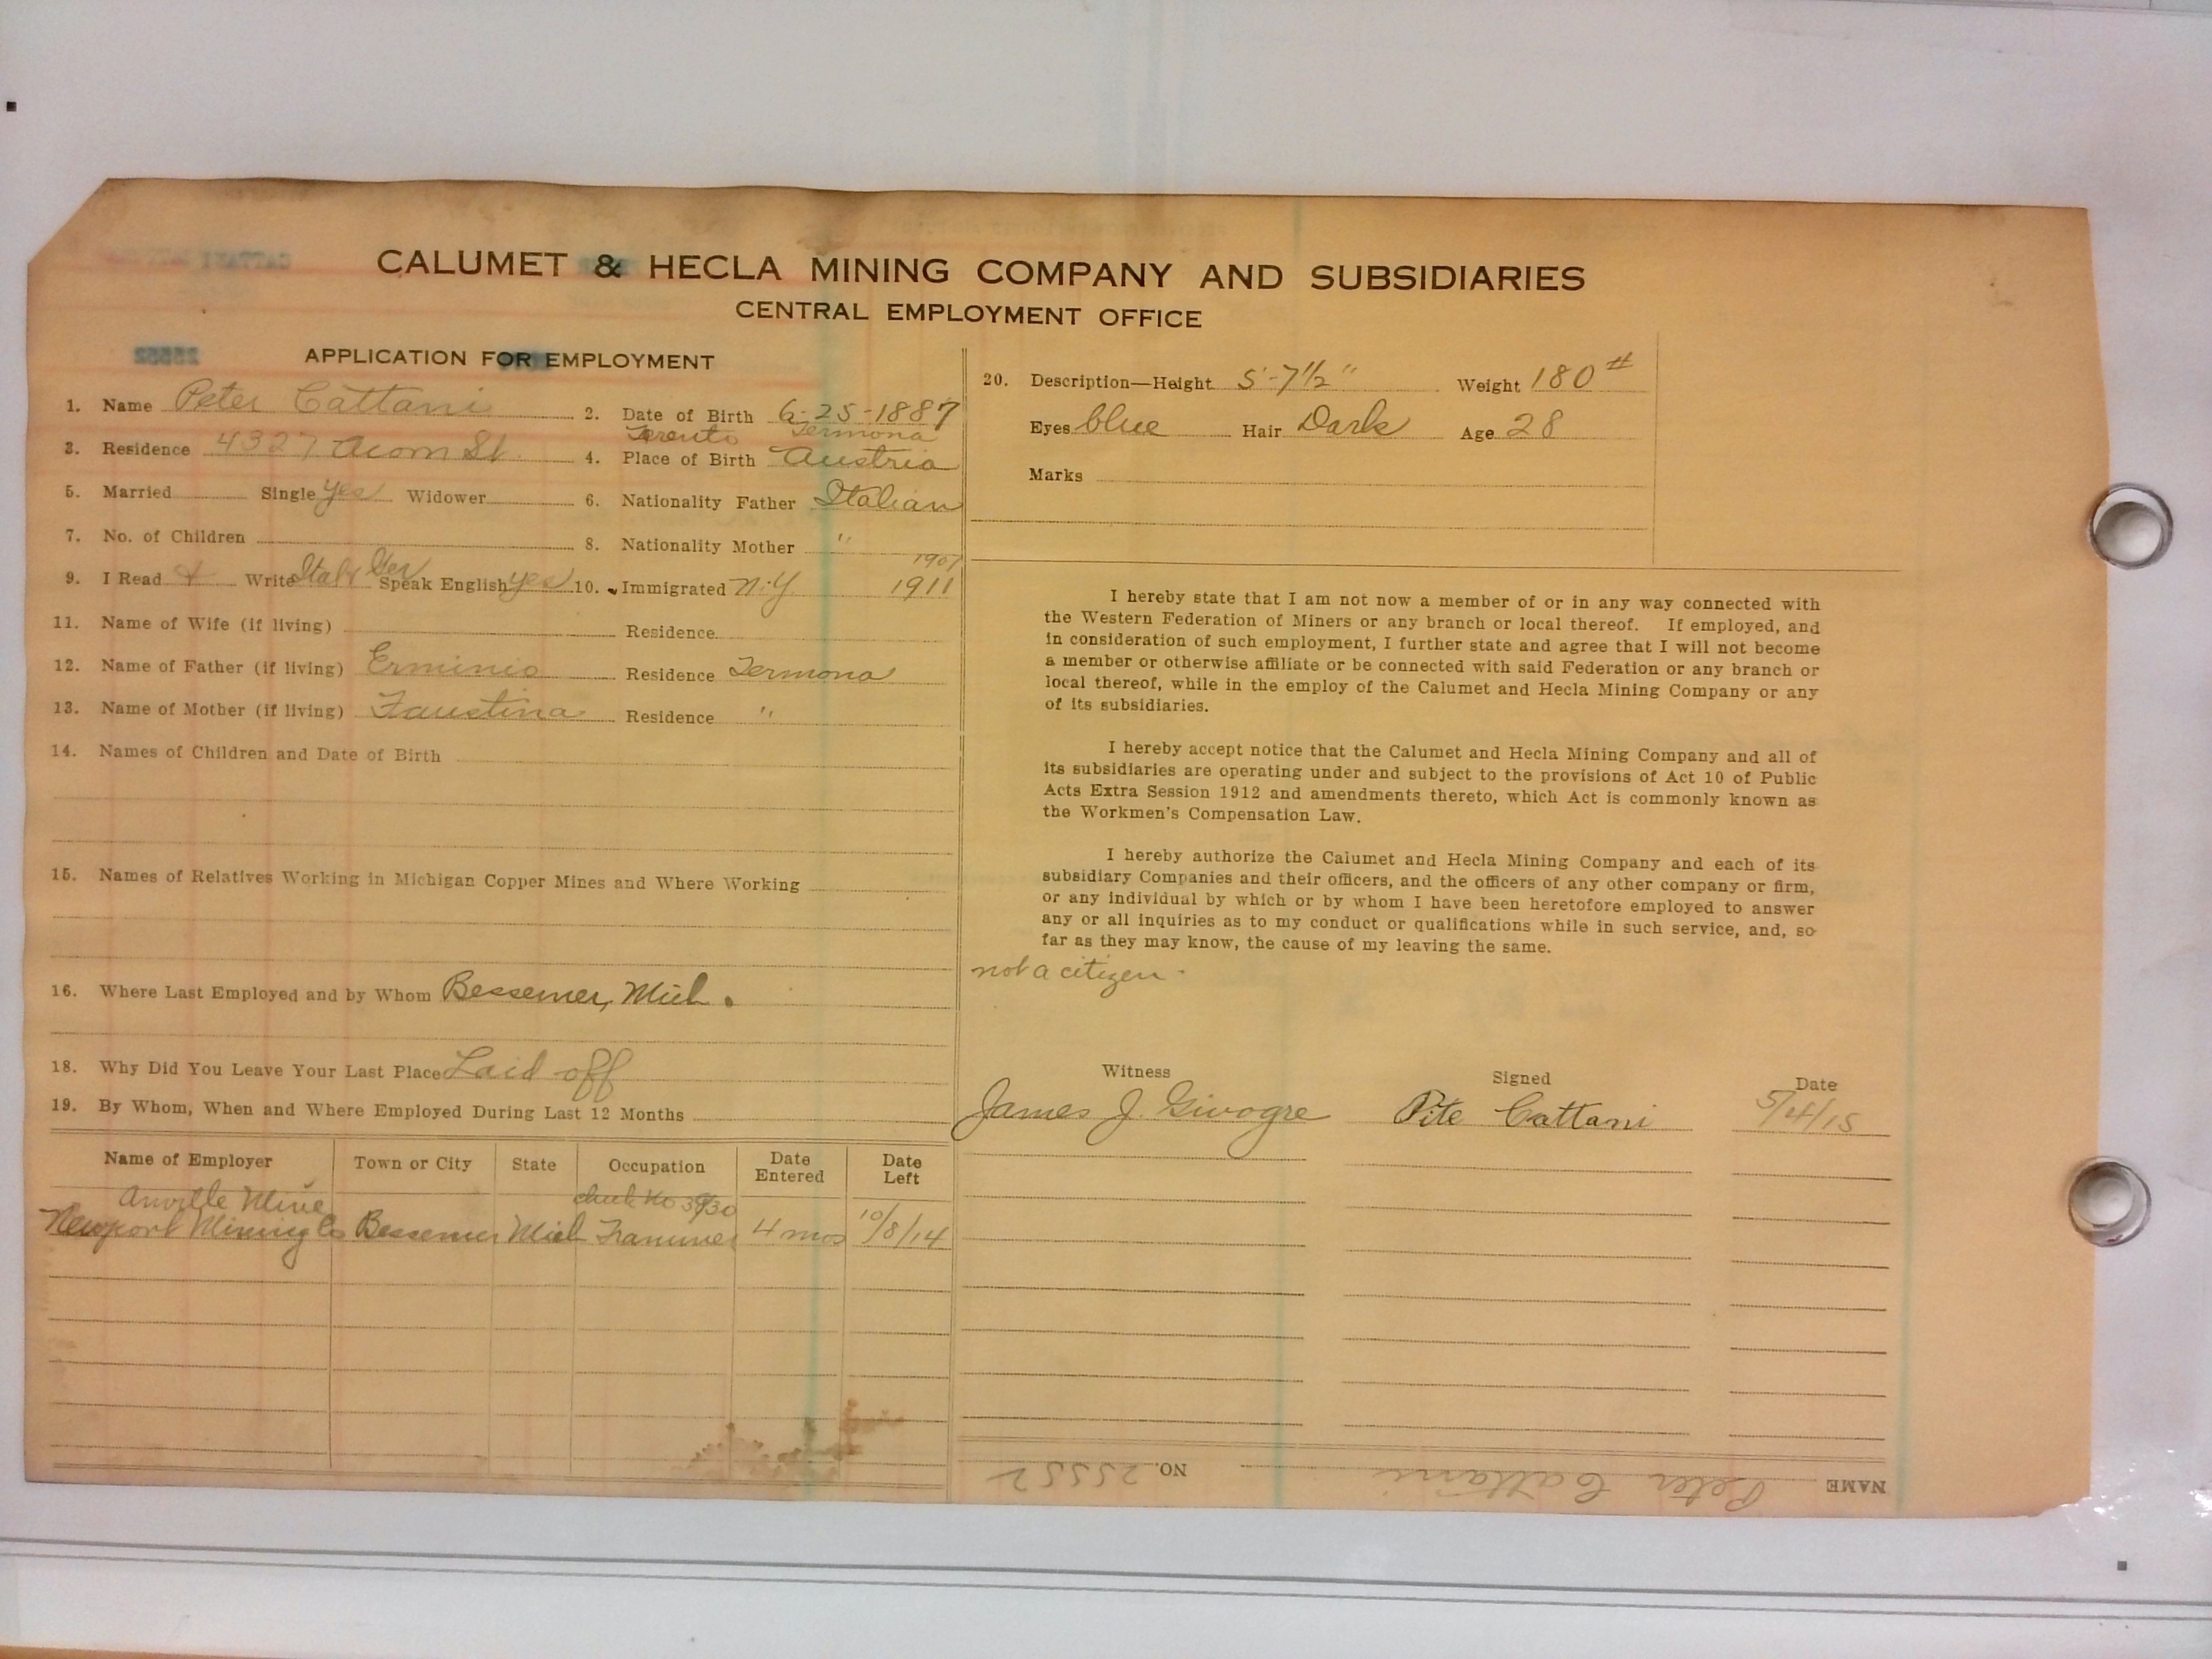 CALUMET & HECLA MINING COMPANY AND SUBSIDIARIES
CENTRAL EMPLOYMENT OFFICE
25552
APPLICATION FOR EMPLOYMENT
1. Name Peter Cattani 2. Date of Birth 6-25-1887
Termona
3. Residence 4327 Acorn St. 4. Place of Birth Austria
5. Married Single yes Widower 6. Nationality Father Italian
7. No. of Children 8. Nationality Mother "
1907
9. I Read & Write Ital & Ger Speak English yes 10. Immigrated N.Y. 1911
11. Name of Wife (if living) Residence
12. Name of Father (if living) Erminio Residence Termona
13. Name of Mother (if living) Faustina Residence "
14. Names of Children and Date of Birth
15. Names of Relatives Working in Michigan Copper Mines and Where Working
16. Where Last Employed and by Whom Bessemer, Mich.
18. Why Did You Leave Your Last Place Laid off
19. By Whom, When and Where Employed During Last 12 Months
Name of Employer Town or City State Occupation Date Entered Date Left
Anville Mine check No 3930
Newport Mining Co Bessemer Mich Trammer 4 mos 10/8/14
20. Description—Height 5'-7 1/2" Weight 180#
Eyes blue Hair Dark Age 28
Marks
I hereby state that I am not now a member of or in any way connected with
the Western Federation of Miners or any branch or local thereof. If employed, and
in consideration of such employment, I further state and agree that I will not become
a member or otherwise affiliate or be connected with said Federation or any branch or
local thereof, while in the employ of the Calumet and Hecla Mining Company or any
of its subsidiaries.
I hereby accept notice that the Calumet and Hecla Mining Company and all of
its subsidiaries are operating under and subject to the provisions of Act 10 of Public
Acts Extra Session 1912 and amendments thereto, which Act is commonly known as
the Workmen's Compensation Law.
I hereby authorize the Calumet and Hecla Mining Company and each of its
subsidiary Companies and their officers, and the officers of any other company or firm,
or any individual by which or by whom I have been heretofore employed to answer
any or all inquiries as to my conduct or qualifications while in such service, and, so
far as they may know, the cause of my leaving the same.
not a citizen.
Witness Signed Date
James J. Givogre Pite Cattani 5/4/15
NAME Peter Cattani NO. 25552